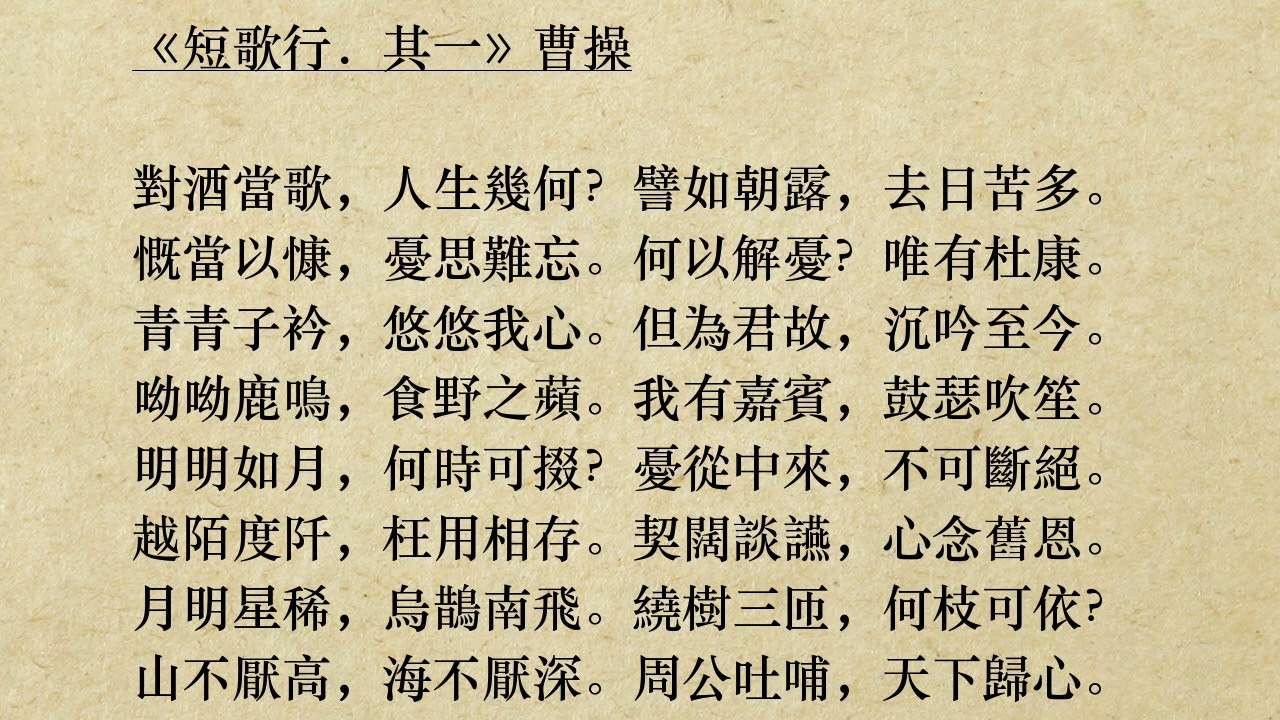 《短歌行．其一》曹操
對酒當歌，人生幾何？譬如朝露，去日苦多。
慨當以慷，憂思難忘。何以解憂？唯有杜康。
青青子衿，悠悠我心。但為君故，沉吟至今。
呦呦鹿鳴，食野之蘋。我有嘉賓，鼓瑟吹笙。
明明如月，何時可掇？憂從中來，不可斷絕。
越陌度阡，枉用相存。契闊談讌，心念舊恩。
月明星稀，烏鵲南飛。繞樹三匝，何枝可依？
山不厭高，海不厭深。周公吐哺，天下歸心。